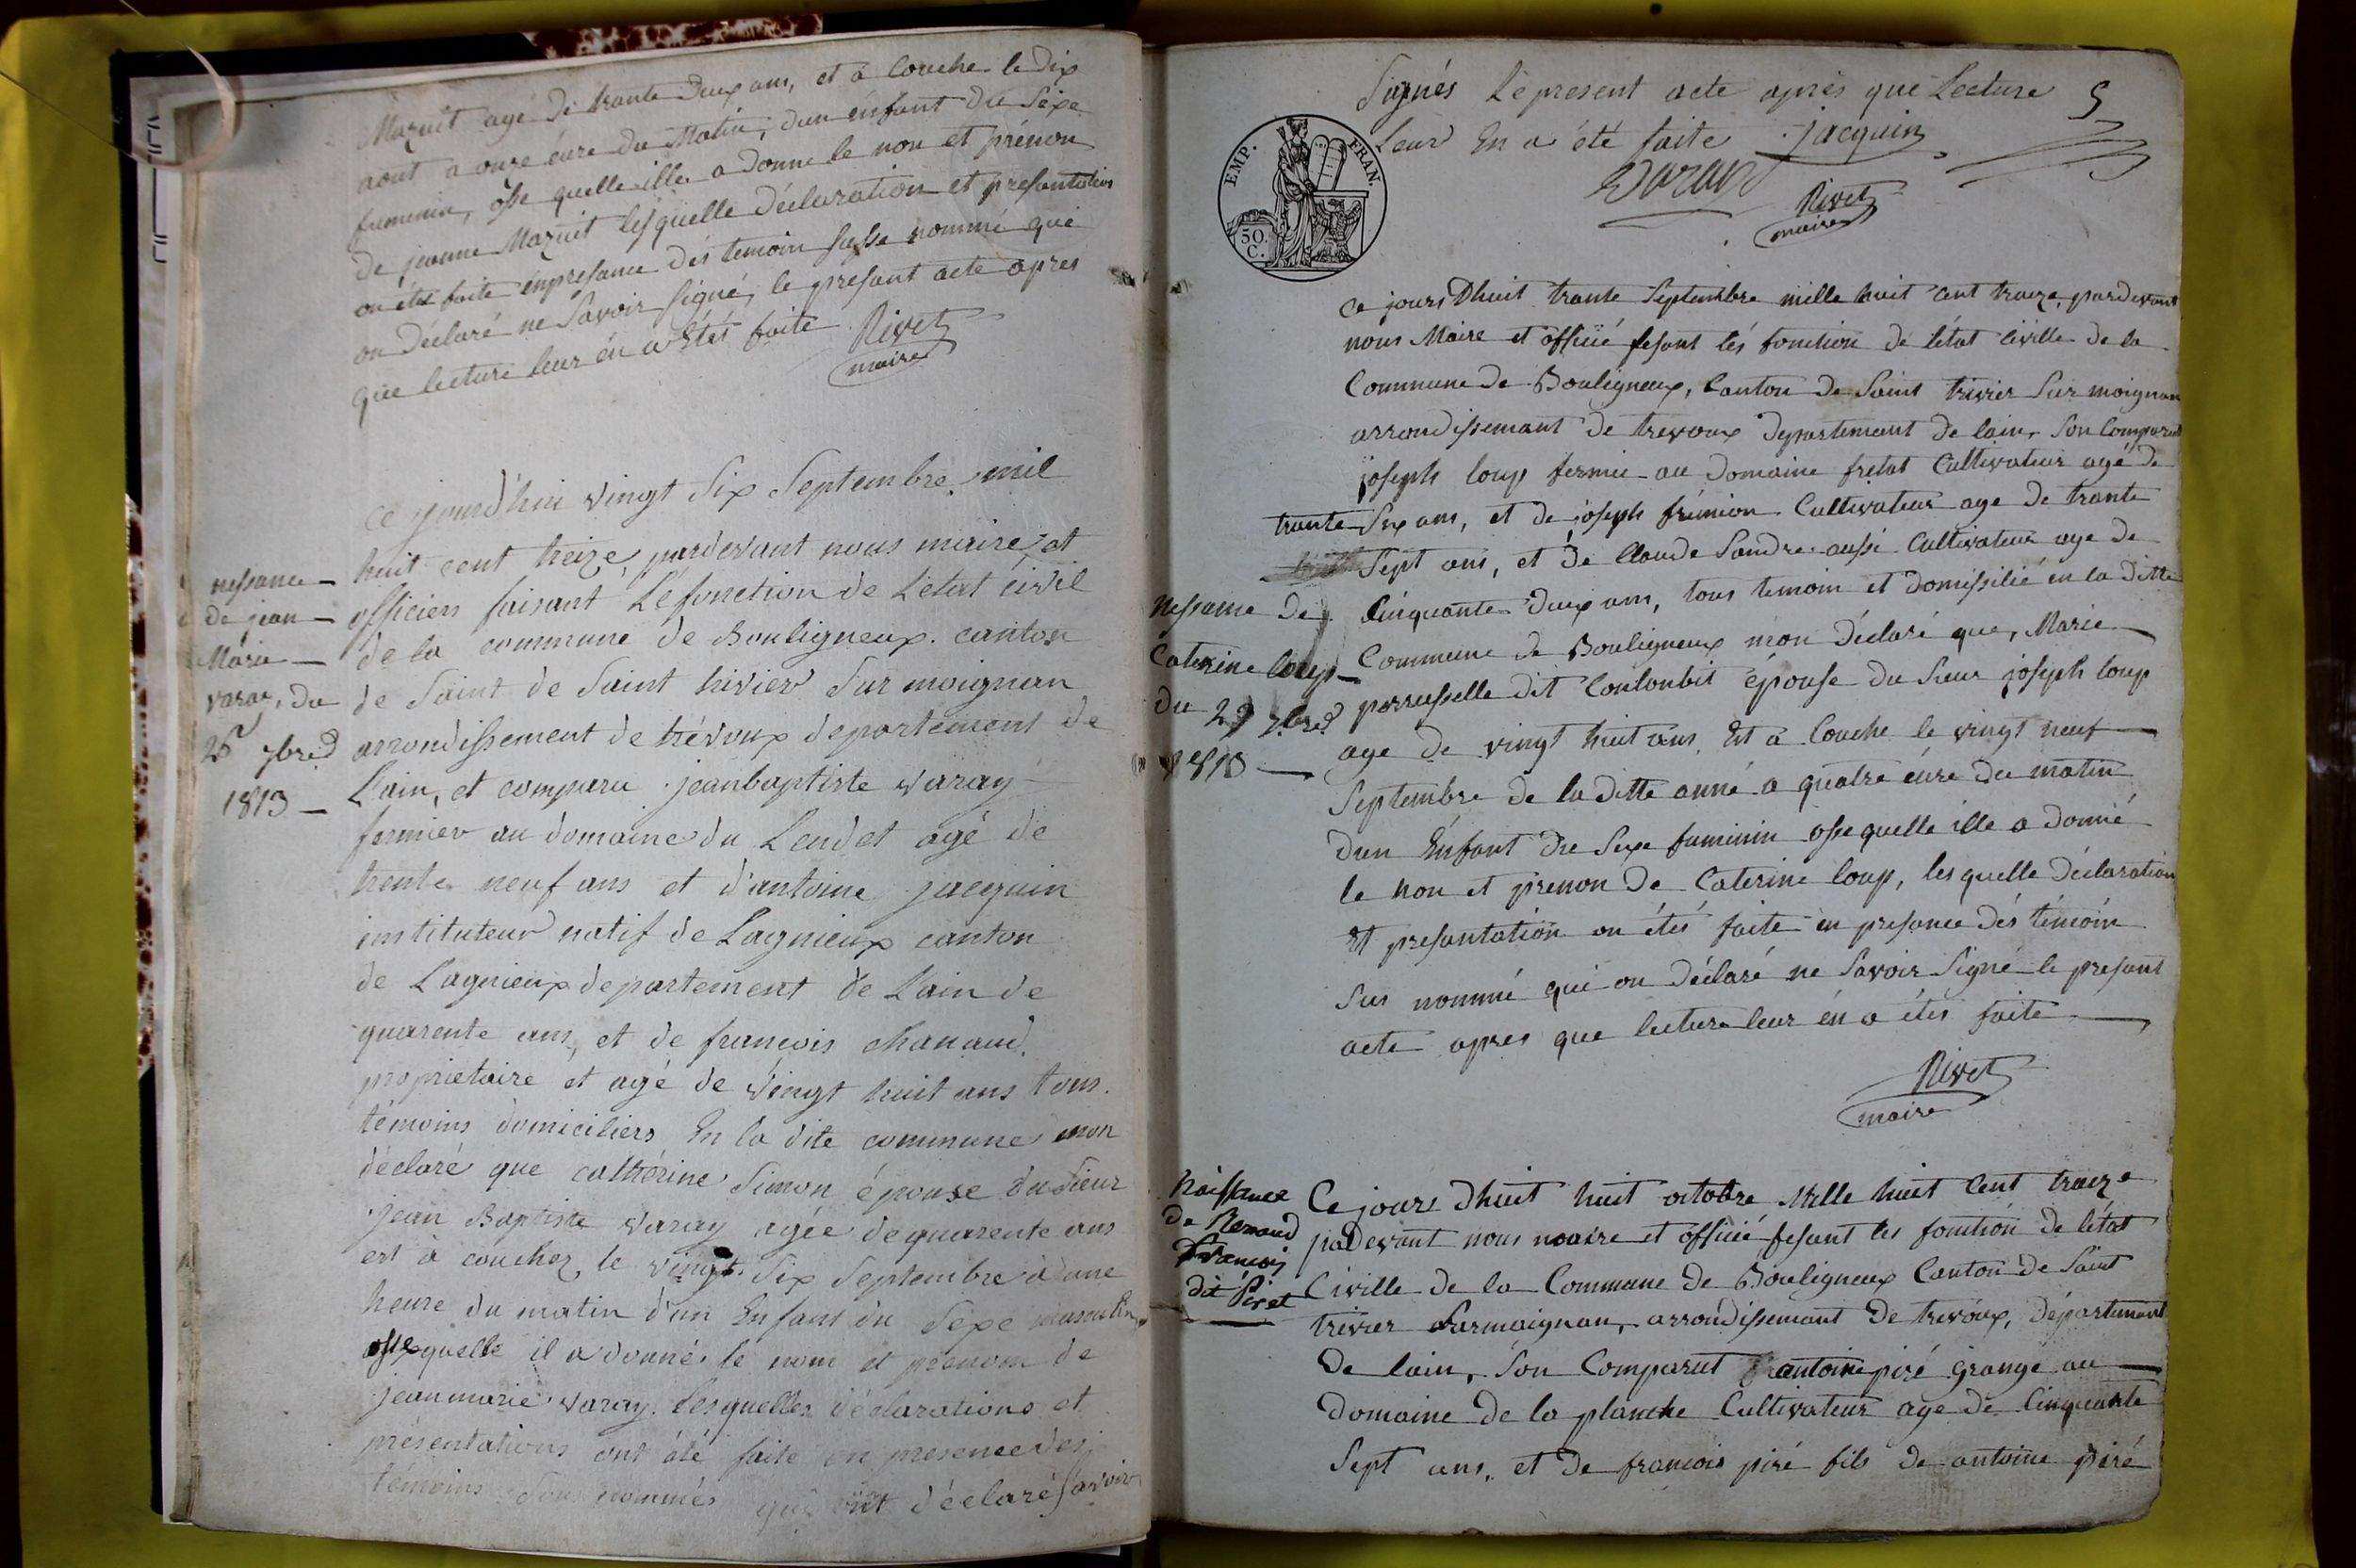 Mazuit agé de trante deux ans, et a Couche le dix
aout a onze éure du Matin, dun enfant du Sexe
fuminin, osse quelle ille a donne le non et prénon
de jeanne Mazuit lesquelle déclaration et presantation
on étés faite enpresance dés temoin susse nommé qui
on déclaré ne Savoir Signé, le presant acte apres
que lecture leur én a étés faite Rivet
maire
Ce jourd'hui vingt Six Septembre mil
nessance — huit cent treize, pardevant nous maire et
de jean — officiers faisant Léfonction de Létat civil
Marie — de la commune de Bouligneux. canton
varay, du de Saint de Saint trivier Sur moignan
26 7bred arrondissement de trévoux departement de
1813 — L'ain, et comparu jeanbaptiste varay
fermier au domaine du Lendet agé de
trente neuf ans et d'antoine jacquin
instituteur natif de Lagnieux canton
de Lagnieux departement de L'ain de
quarente ans, et de francois chanaud.
proprietaire et agé de vingt huit ans tous.
témoins domiciliers En la dite commune mon
déclaré que cathérine Simon épouse du Sieur
jean Baptiste varay agée de quarente ans
est à couchez le vingt Six Septembre à une
heure du matin d'un Enfant du Sexe masculin
osse quelle il a donné le nom et prenom de
jean marie varay. Lesquelles déclarations et
présentations ont été faite en presence des
témoins Sous nommés qui ont déclaré savoir
Signés Le present acte après que Lecture 5
Leur En a été faite jacquin
Varay
Rivet
maire
EMP. FRAN.
50. C.
Ce jours Dhuit trante Septembre mille huit cent traize, pardevant
nous Maire et officié fesant lés fonction de létat civille de la
Commune de Bouligneux, Canton de Saint trivier Sur moignan
arrondissemant de trevoux departemant de lain, Son Comparut
joseph loup fermié au Domaine fretat Cultivateur agé de
trante Six ans, et de joseph frémion Cultivateur age de trante
Sept ans, et de Claude Sandre aussi Cultivateur age de
Nessance de Cinquante Deux ans, tous temoin et domissilié en la ditte
Caterine loup — Commune de Bouligneux mon déclaré que, Marie
du 29 7bred perrusselle dit Coulonbit épouse du Sieur joseph loup
1813 — age de vingt huit ans, Et a Couche le vingt neuf —
Septembre de la ditte anné a quatre éure du matin
dun Enfant du Sexe fuminin osse quelle ille a donné
le non et prenon de Caterine loup, lesquelle déclaration
Et presantation on étés faite en presance dés témoin
Sus nommé qui on déclaré ne Savoir Signé le presant
acte apres que lecture leur én a étés faite —
Rivet
maire
Naissance Ce jours dhuit huit octobre Mille huit Cent traize
de Renaud padevant nous maire et officié fesant les fonction de létat
Francois Civille de la Commune de Bouligneux Canton de Saint
dit Piret trivier Surmoignan, arrondissemant de trevoux, département
De lain, Son Comparut antoine piré Grangé au —
Domaine de la planche Cultivateur age de Cinquante
Sept ans, et de francois piré fils de antoine piré